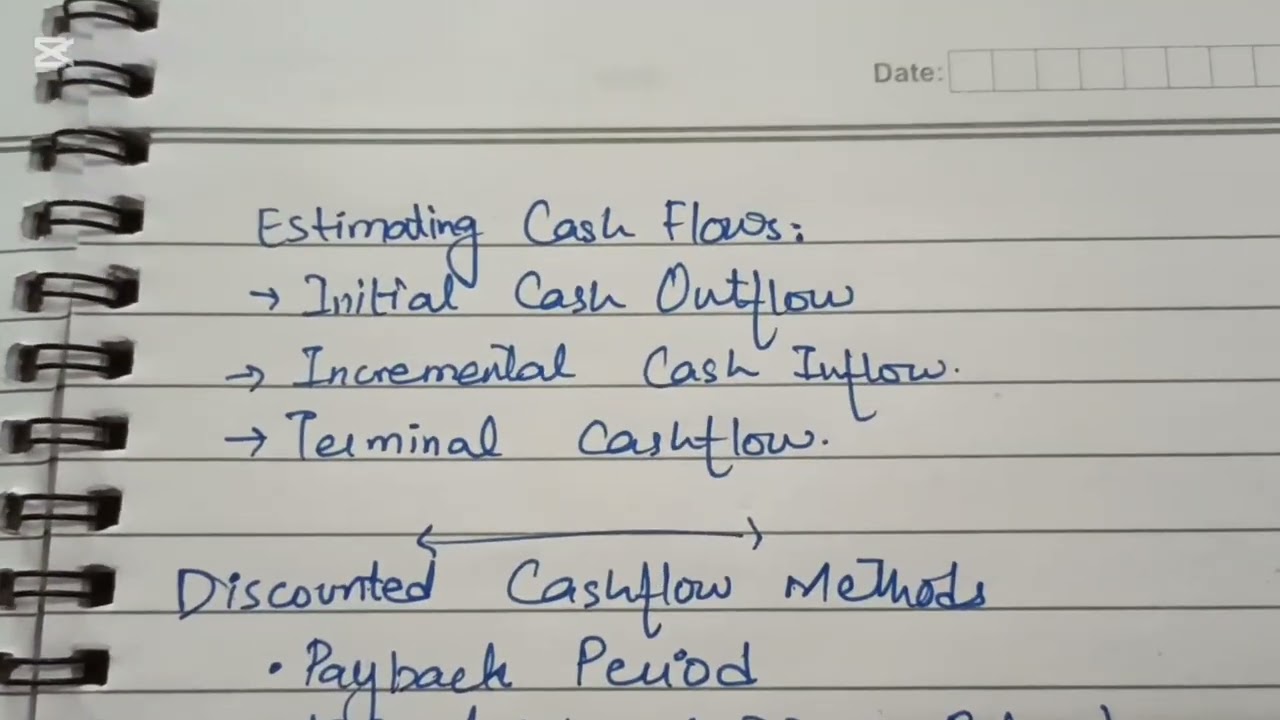 Date:
Estimating Cash Flows:
→ Initial Cash Outflow
→ Incremental Cash Inflow.
→ Terminal Cashflow.
Discounted Cashflow Methods
• Payback Period